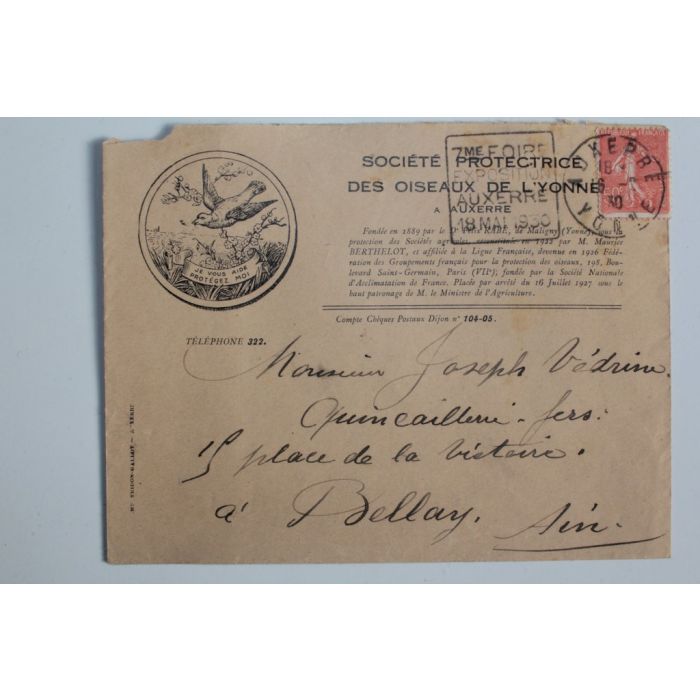 SOCIÉTÉ PROTECTRICE
DES OISEAUX DE L'YONNE
A AUXERRE
Fondée en 1889 par le RABÉ, de Maligny (Yonne), sous la
protection des Sociétés agricoles, reconstituée en 1922 par M. Maurice
BERTHELOT, et affiliée à la Ligue Française, devenue en 1926 Fédé-
ration des Groupements français pour la protection des oiseaux, 198, Bou-
levard Saint-Germain, Paris (VIIe), fondée par la Société Nationale
d'Acclimatation de France. Placée par arrêté du 16 Juillet 1927 sous le
haut patronage de M. le Ministre de l'Agriculture.
Compte Chèques Postaux Dijon n° 104-05.
7ME FOIRE
EXPOSITION
AUXERRE
18 MAI 1930
AUXERRE
30
YONNE
50c
JE VOUS AIDE
PROTÉGEZ MOI
TÉLÉPHONE 322.
Monsieur Joseph Védrine.
Quincaillerie - fers.
15 place de la Victoire.
à Bellay. Ain.
AUXERRE